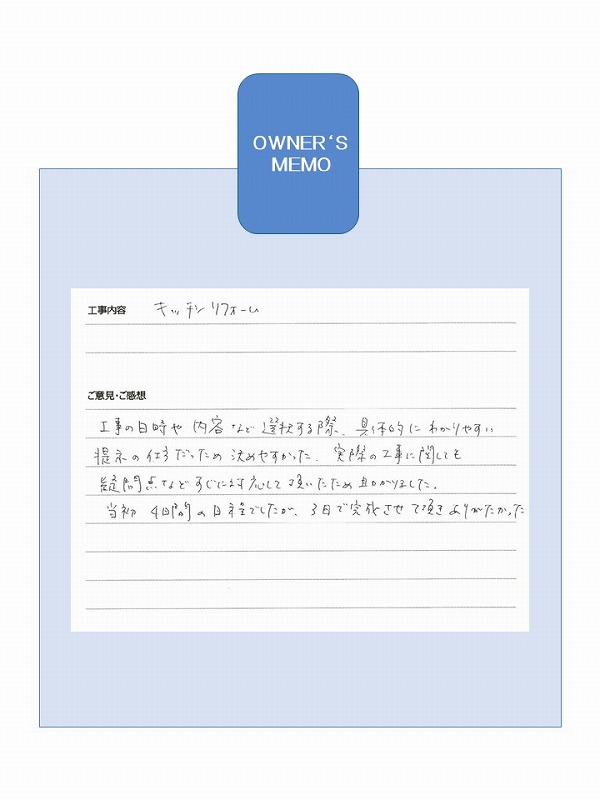 OWNER‘S
MEMO
工事内容 キッチンリフォーム
ご意見・ご感想
工事の日時や内容など選択する際、具体的にわかりやすい
提示の仕方だったため決めやすかった。実際の工事に関しても
疑問点などすぐに対応して頂いたため助かりました。
当初4日間の日程でしたが、3日で完成させて頂きありがたかった